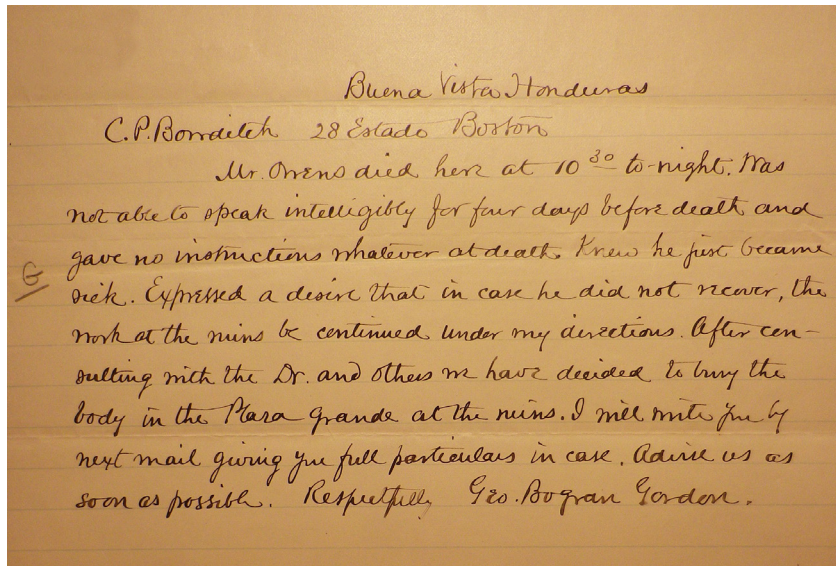 Buena Vista Honduras
C. P. Bowditch 28 Estado Boston
Mr. Owens died here at 10 30 to-night. Was
not able to speak intelligibly for four days before death and
gave no instructions whatever at death. Knew he just became
sick. Expressed a desire that in case he did not recover, the
work at the ruins be continued under my directions. After con-
sulting with the Dr. and others we have decided to bury the
body in the Plaza grande at the ruins. I will write you by
next mail giving you full particulars in case. Advise us as
soon as possible. Respectfully Geo. Bogran Gordon.